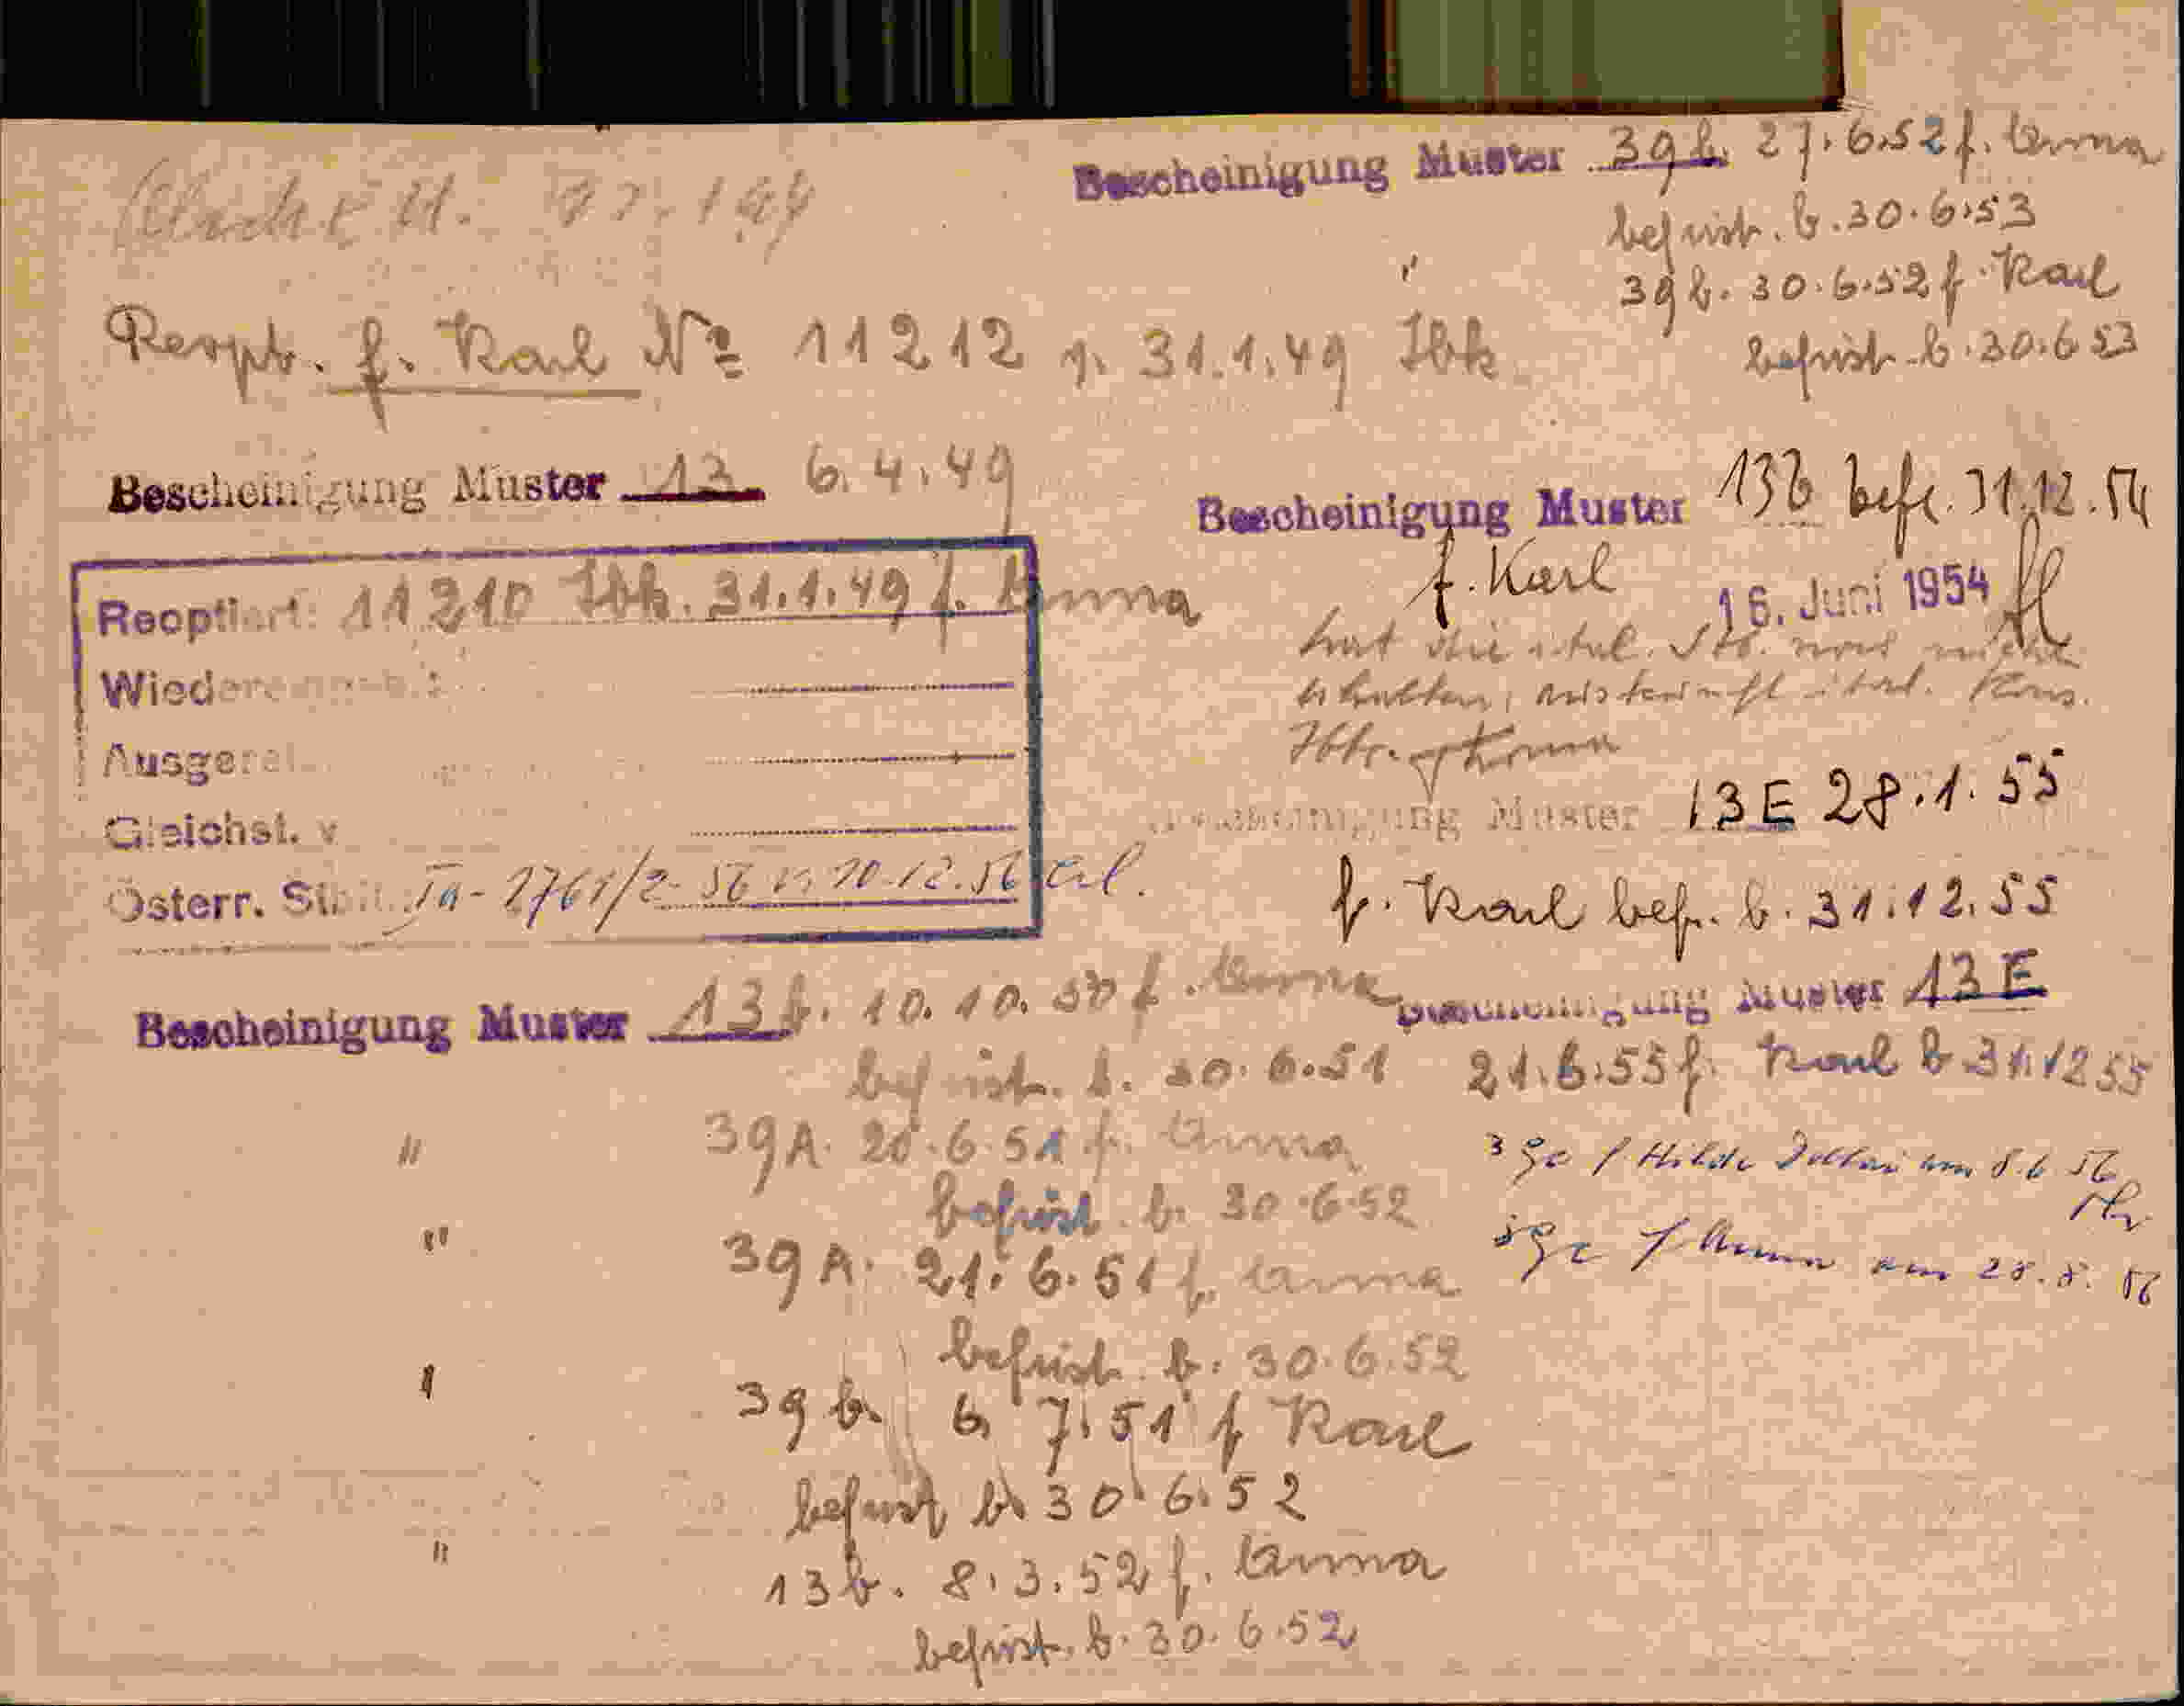 Bescheinigung Muster 39b. 27.6.52 f. Anna
befrist. b. 30.6.53
39b. 30.6.52 f. Karl
befrist. b. 30.6.53
Reopt. f. Karl № 11212 v. 31.1.49 Ibk.
Bescheinigung Muster 13 6.4.49
Reoptiert: 11210 Ibk. 31.1.49 f. Anna
Ausgeral
Gleichst. v
Österr. Stb. Ia-2761/2-56 v. 10.12.56
Bescheinigung Muster 13b. 10.10.50 f. Anna
befrist. b. 30.6.51
" 39A. 20.6.51 f. Anna
befrist. b. 30.6.52
" 39A. 21.6.51 f. Anna
befrist. b. 30.6.52
" 39b. 6.7.51 f Karl
befrist b. 30.6.52
" 13b. 8.3.52 f. Anna
befrist. b. 30.6.52
Bescheinigung Muster 13b befr. 31.12.54
f. Karl
16. Juni 1954
hat die ital. Stb. noch nicht
erhalten, Auskunft ital. Kons.
Ibk.
Bescheinigung Muster 13E 28.1.55
f. Karl bef. b. 31.12.55
Bescheinigung Muster 13E
21.6.55 f. Karl b 31.12 55
39c f Hilde am 8.6 56
39c f Anna am 28.8.56